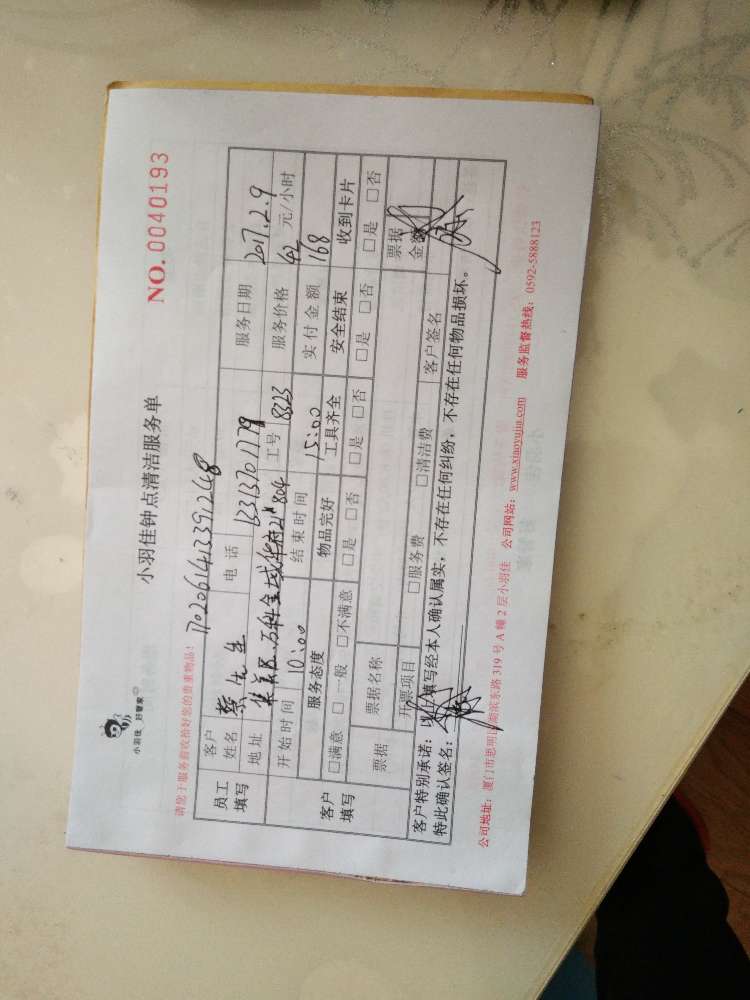 小羽佳 好管家
小羽佳钟点清洁服务单
NO. 0040193
请您于服务前收拾好您的贵重物品!
1702061413391248
员工填写
客户姓名 蔡先生 电话 13313701779 服务日期 2017.2.9
地址 集美区万科金域华府21# 804 工号 8323 服务价格 42 元/小时
开始时间 10:00 结束时间 15:00 实付金额 168
客户填写
服务态度 物品完好 工具齐全 安全结束 收到卡片
□满意 □一般 □不满意 □是 □否 □是 □否 □是 □否 □是 □否
票据 票据名称 票据金额
开票项目 □服务费 □清洁费 客户签名
客户特别承诺:以上填写经本人确认属实,不存在任何纠纷,不存在任何物品损坏。
特此确认签名:
公司地址:厦门市思明区湖滨东路319号A幢2层小羽佳 公司网站:www.xiaoyujia.com 服务监督热线:0592-5888123